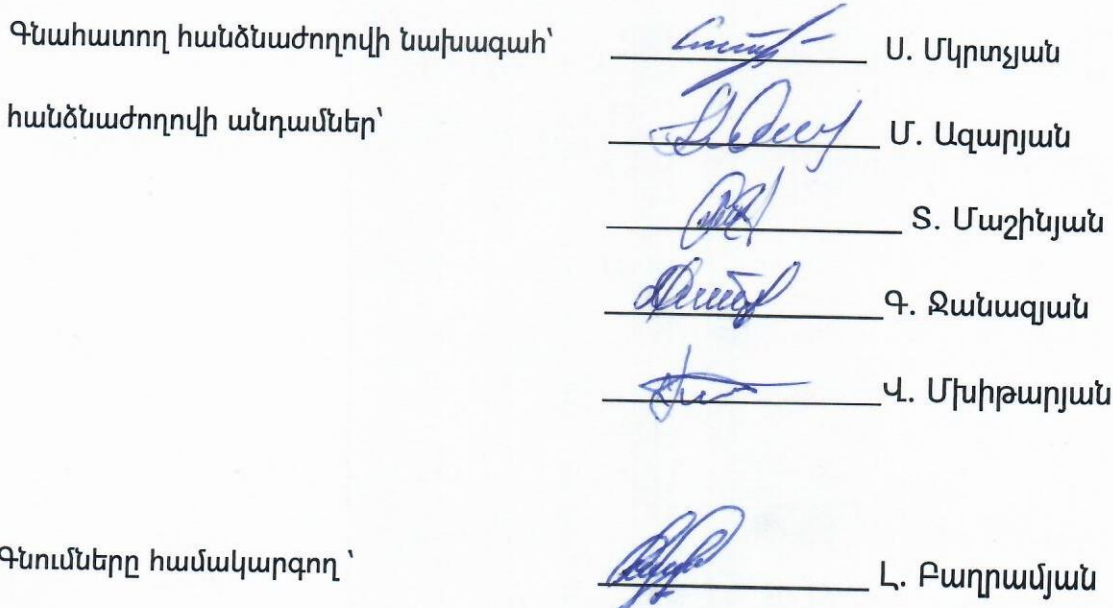 Գնահատող հանձնաժողովի նախագահ՝ Ս. Մկրտչյան
հանձնաժողովի անդամներ՝ Մ. Ազարյան
Տ. Մաշինյան
Գ. Ջանազյան
Վ. Մխիթարյան
Գնումները համակարգող ՝ Լ. Բաղրամյան